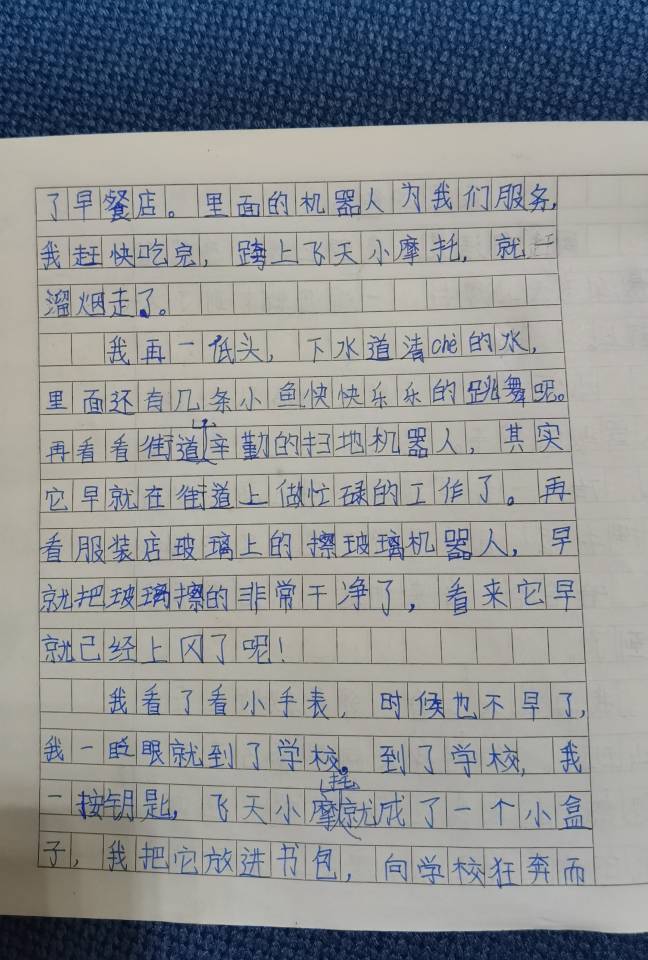 了早餐店。里面的机器人为我们服务,
我赶快吃完，跨上飞天小摩托，就一
溜烟走了。
我再一低头，下水道清chè的水，
里面还有几条小鱼快快乐乐的跳舞呢。
再看看街道上辛勤的扫地机器人，其实
它早就在街道上做忙碌的工作了。再
看服装店玻璃上的擦玻璃机器人，早
就把玻璃擦的非常干净了，看来它早
就已经上冈了呢！
我看了看小手表，时候也不早了，
我一眨眼就到了学校。到了学校，我
一按钥匙，飞天小摩托就成了一个小盒
子，我把它放进书包，向学校狂奔而